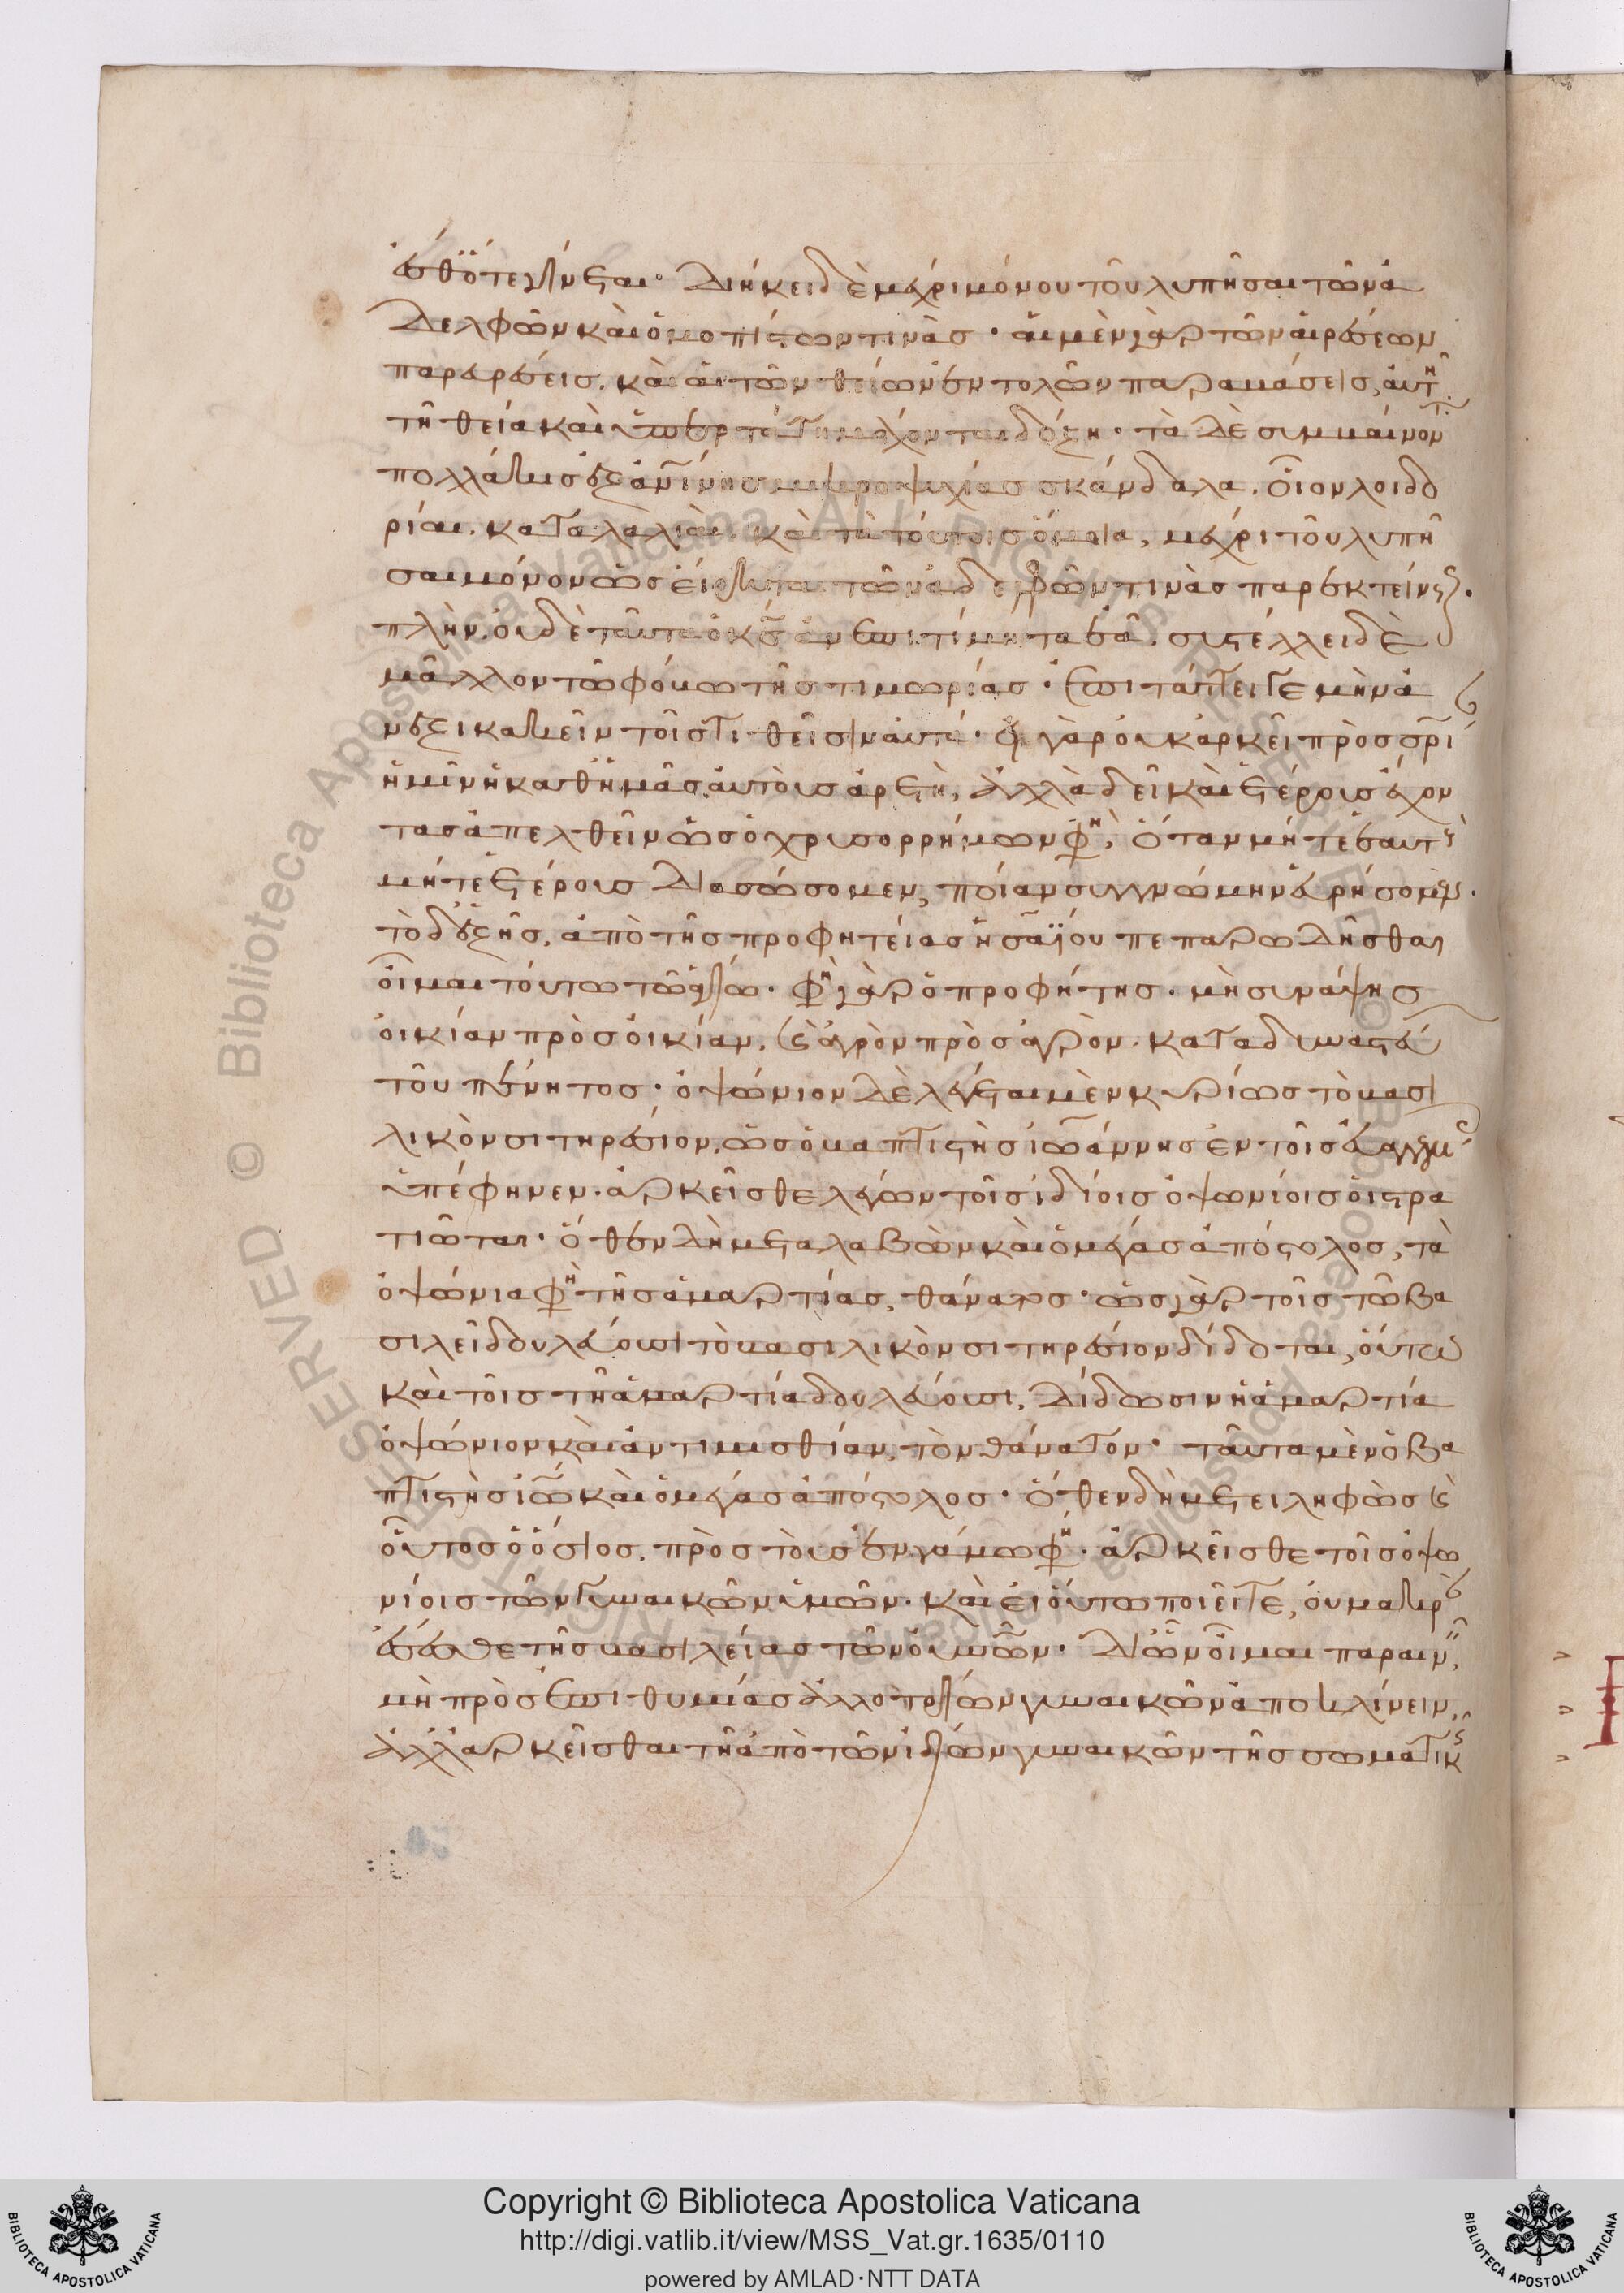 ἐσθότε γίνεται· Διήκει δὲ μέχρι μόνου τοῦ λυπῆσαι τῶν ἀ
δελφῶν καὶ ὁμοπίστων τινὰς· αἱ μὲν γὰρ τῶν αἱρέσεων
παραιρέσεις, καὶ αἱ τῶν θείων ἐντολῶν παραβάσεις, αὐτῆ
τῆ θεία καὶ δόξη· τὰ δὲ συμβαίνοντα
πολλάκις ἐξ σμικροψυχίας σκάνδαλα, οἷον λοιδο
ρίαι, καταλαλιαὶ, καὶ τὰ τούτοις ὅμοια, μέχρι τοῦ λυπῆ
σαι μόνον ὡς τῶν ἀδελφῶν τινὰς παρεκτείνεται·
πλὴν, οὐδὲ ταῦτα ὁ ἀνεπιτίμητα ἐᾶ. συστέλλει δὲ
μᾶλλον τῶ φόβω τῆς τιμωρίας· ἐπιτάττει γε μὴν ἀ
νεξικακεῖν τοῖς αὐτά· οὐ γὰρ οὐκ ἀρκεῖ πρὸς σρίαν
ἡμῖν ἡ καθ' ἡμᾶς αὐτοὺς ἀρετή, ἀλλὰ δεῖ καὶ ἑτέρους ἔχον
τας ἀπελθεῖν ὡς ὁ χρυσορρήμων φη, ὅταν μήτε ἑαυτοὺς
μήτε ἑτέρους διασώσομεν, ποίαν συγγνώμην εὑρήσομεν·
τὸ δ' ἑξῆς, ἀπὸ τῆς προφητείας ἠσαΐου πεπαρωδῆσθαι
οἶμαι τούτω τῶ ἁγίω· φη γὰρ ὁ προφήτης· μὴ συνάψης
οἰκίαν πρὸς οἰκίαν, καὶ ἀγρὸν πρὸς ἀγρὸν. καταδυναστεύ
του πένητος· ὀψώνιον δὲ λέγεται μὲν κυρίως τὸ βασι
λικὸν σιτηρέσιον, ὡς ὁ βαπτιστὴς ἰωάννης ἐν τοῖς εὐαγγελίοις
ὑπέφηνεν· ἀρκεῖσθε λέγων τοῖς ἰδίοις ὀψωνίοις οἱ στρα
τιῶται· ὅθεν δὴ μεταλαβὼν καὶ ὁ μέγας ἀπόστολος, τὰ
ὀψώνια φη τῆς ἁμαρτίας, θάνατος· ὡς γὰρ τοῖς τῶ βα
σιλεῖ δουλεύουσι τὸ βασιλικὸν σιτηρέσιον δίδοται, οὕτω
καὶ τοῖς τῆ ἁμαρτία δουλεύουσι, δίδωσιν ἡ ἁμαρτία
ὀψώνιον καὶ ἀντιμισθίαν, τὸν θάνατον· ταῦτα μὲν ὁ βα
πτιστὴς ἰω καὶ ὁ μέγας ἀπόστολος· ὅθεν δὴ μετειληφὼς καὶ
οὗτος ὁ ὅσιος, πρὸς τοὺς ἐν γάμω φη· ἀρκεῖσθε τοῖς ὀψω
νίοις τῶν γυναικῶν ὑμῶν. καὶ εἰ οὕτω ποιεῖτε, οὐ μακρὰν
ἔσεσθε τῆς βασιλείας τῶν οὐνῶν· δι' ὧν οἶμαι παραινεῖ,
μὴ πρὸς ἐπιθυμίας ἀλλοτρίων γυναικῶν ἀποκλίνειν,
ἀλλ' ἀρκεῖσθαι τῆ ἀπὸ τῶν ἰδίων γυναικῶν τῆς σωματικῆς
Copyright © Biblioteca Apostolica Vaticana
http://digi.vatlib.it/view/MSS_Vat.gr.1635/0110
powered by AMLAD·NTT DATA